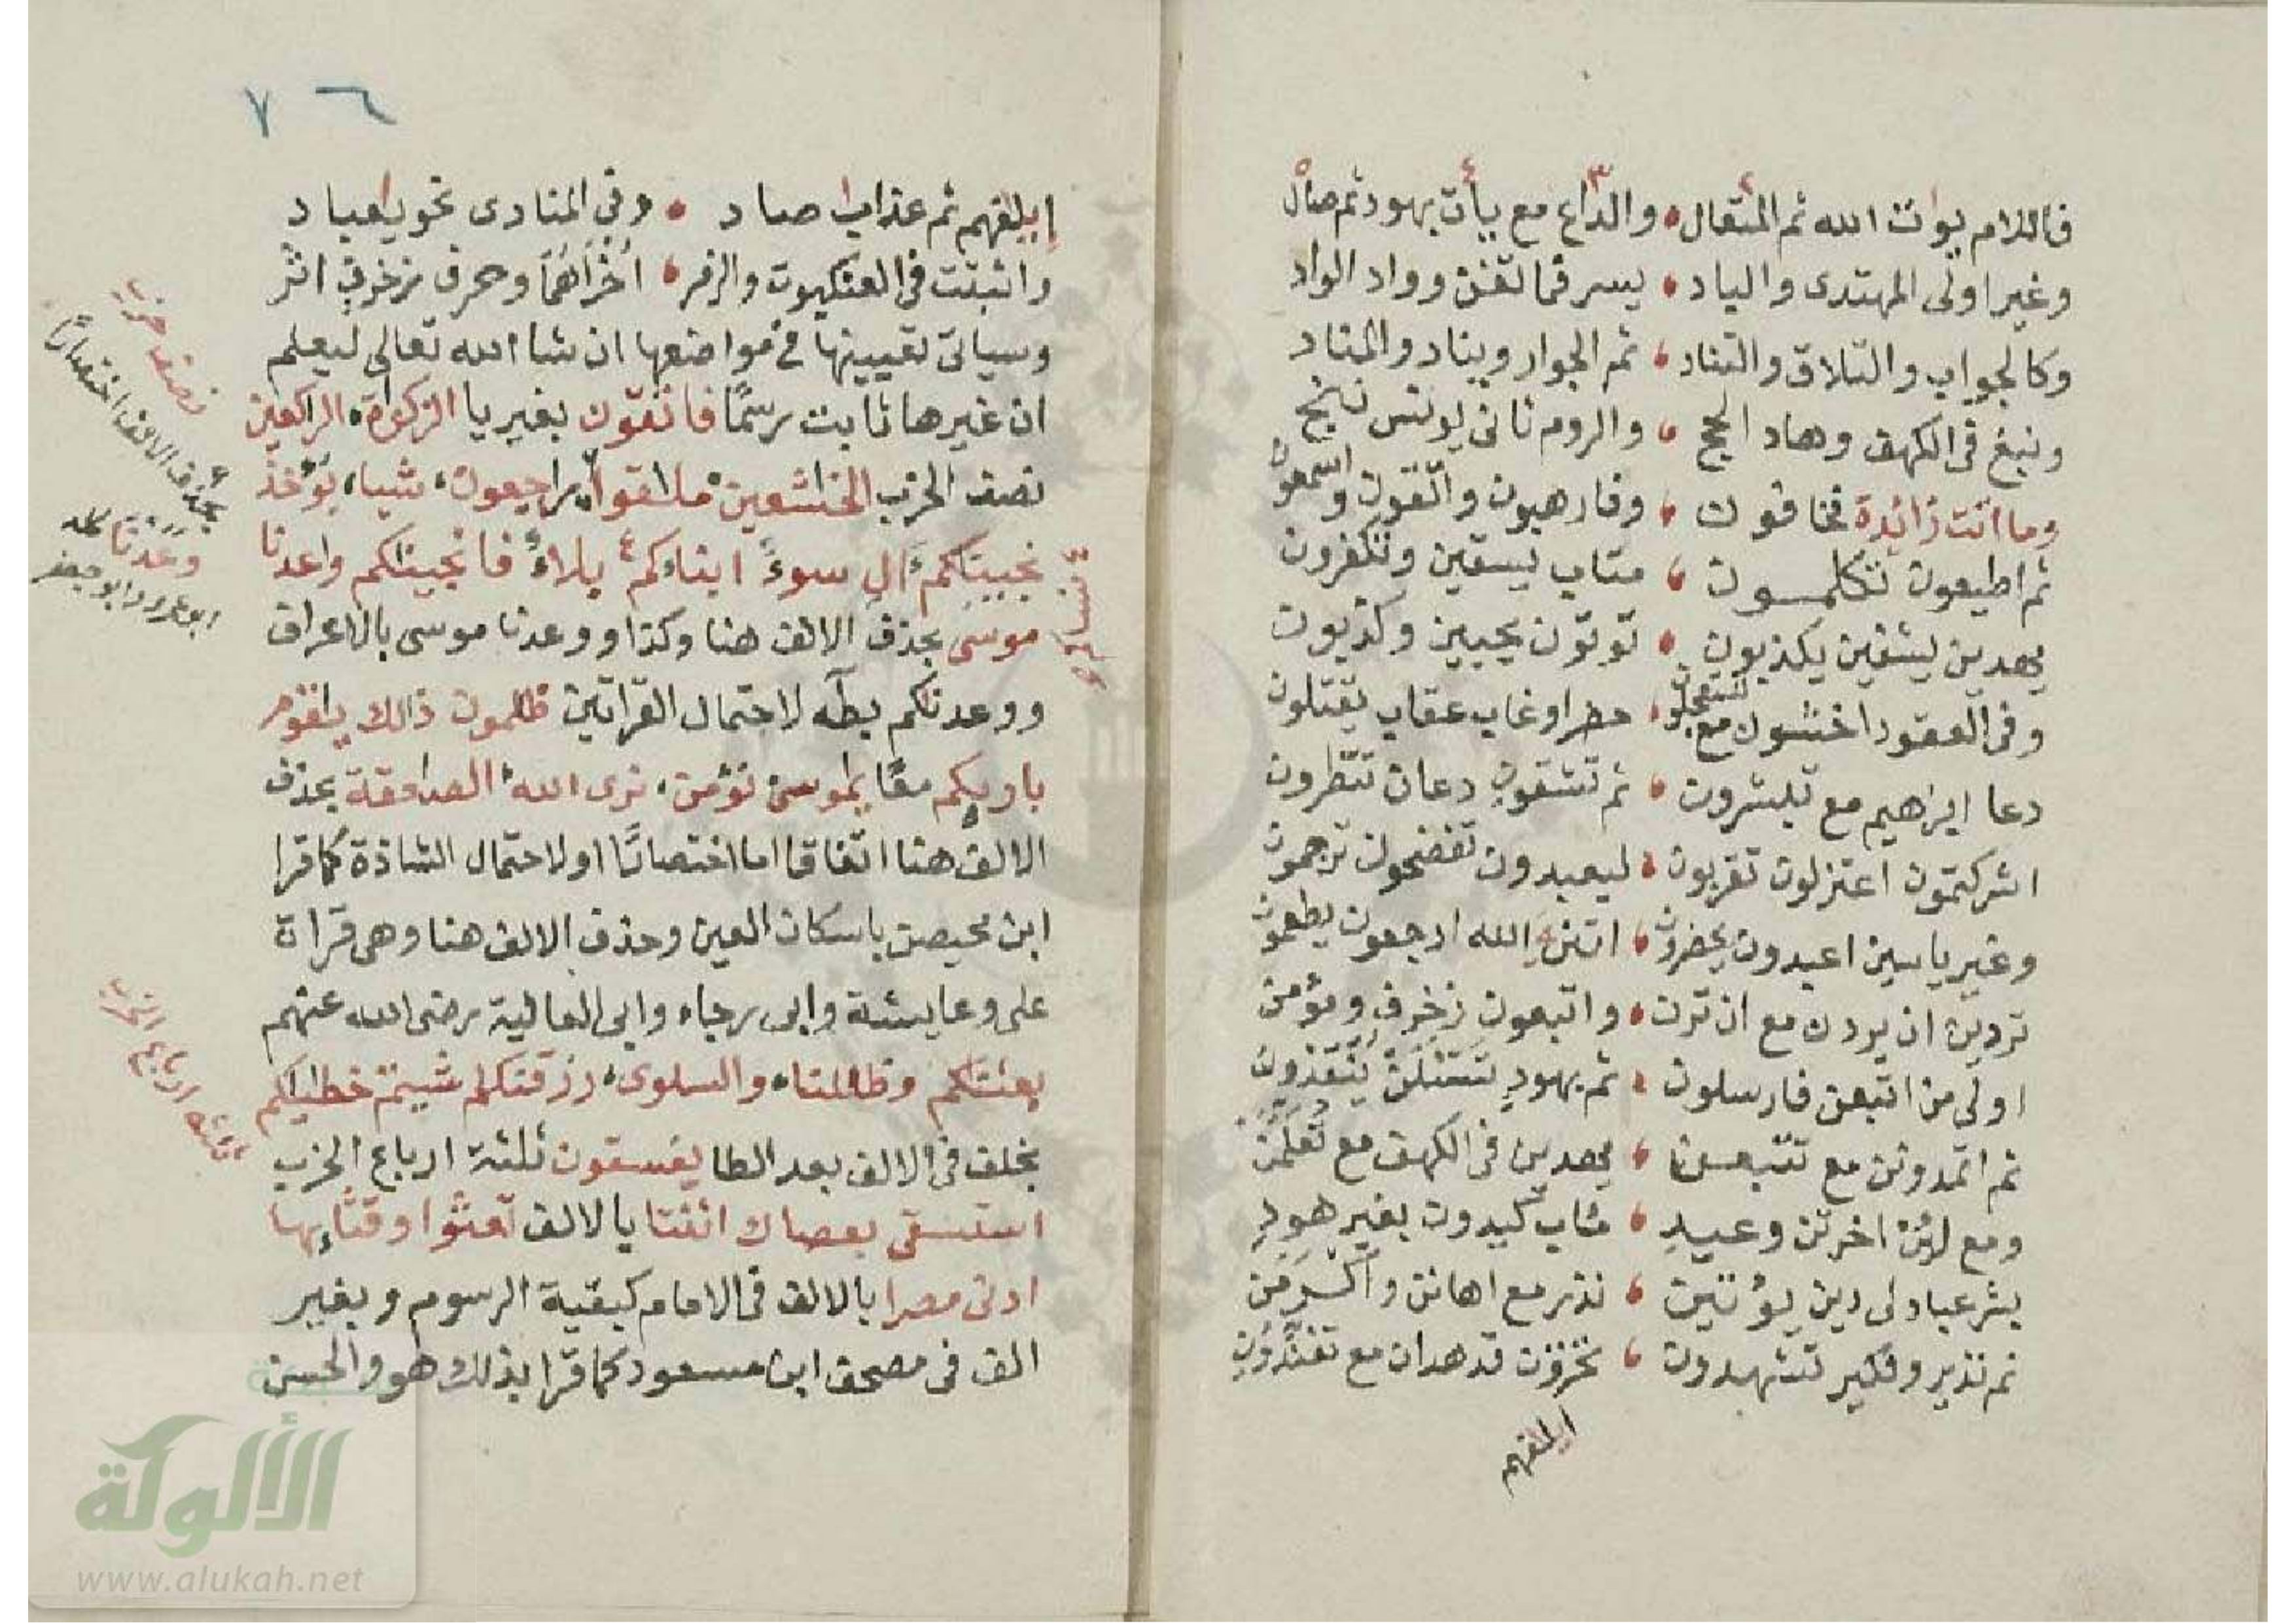 فاللام يؤت الله ثم المتعال والداع مع يأت بهود ثم صال
وغير اولى المهتدى والباد يسر فما تغن وواد الواد
وكالجواب والتلاق والتناد ثم الجوار ويناد والمناد
ونبغ فى الكهف وهاد الحج والروم ثانى يونس ننج
وما اتت زائدة فخافون وفارهبون واتقون واسمعون
ثم اطيعون تكلمون متاب يسقين وتكفرون
يهدين يشفين يكذبون توتون يحيين وكذبون
وفى العقود اخشون مع تستعجلو عقاب يقتلون
دعا ابراهيم مع تبشرون ثم تشقون دعان تنظرون
اشركتمون اعتزلون تقربون ليعبدون تفضحون ترجمون
وغير ياسين اعبدون يحضرون اتن الله ارجعون يطعمون
تردين ان يردن مع ان ترن واتبعون زخرف ومؤمن
اولى من اتبعن فارسلون ثم بهود تسئلن ينقذون
ثم اتمدونن مع تتبعن يهدين فى الكهف مع تعلمن
ومع لئن اخرتن وعيد كيدون بغير هود
بشر عباد لى دين يؤتين نذر مع اهانن واكرمن
ثم نذير ونكير تشهدون تخزون قد هدان مع تفندون
ايلفهم
٧٦
ايلفهم ثم عذاب صاد وفى المنادى نحو يعباد
واثبتت فى العنكبوت والزمر اخراهما وحرف زخرف اثر
وسياتى تعيينها فى مواضعها ان شا الله تعالى ليعلم
ان غيرها ثابت رسما فاتقون بغير يا الزكوة الراكعين
نصف الحزب الخاشعين ملاقوا راجعون شيا يؤخذ
نجينكم ال سوء ابناءكم بلاء فانجينكم واعدنا
موسى بحذف الالف هنا وكذا ووعدنا موسى بالاعراف
ووعدنكم بطه لاحتمال القراتين ظلمون ذالك يقوم
باريكم معا يموسى نؤمن نرى الله الصاعقة بحذف
الالف هنا اتفاقا اما اختصارا او لاحتمال الشاذة كما قرا
ابن محيصن باسكان العين وحذف الالف هنا وهى قراة
على وعايشة وابى رجاء وابى العالية رضى الله عنهم
بعثنكم وظللنا والسلوى رزقنكم شيتم خطيكم
بخلف فى الالف بعد الطا يفسقون ثلثة ارباع الحزب
استسقى بعصاك اثنتا بالالف تعثوا وقثايها
ادنى مصرا بالالف فى الامام كبقية الرسوم وبغير
الف فى مصحف ابن مسعود كما قرا بذلك هو والحسن
نصف حزب
بحذف الالف اختصارا
وعدنا
ابو عمرو وابو جعفر
ثلثة ارباع الحزب
الألوكة
www.alukah.net